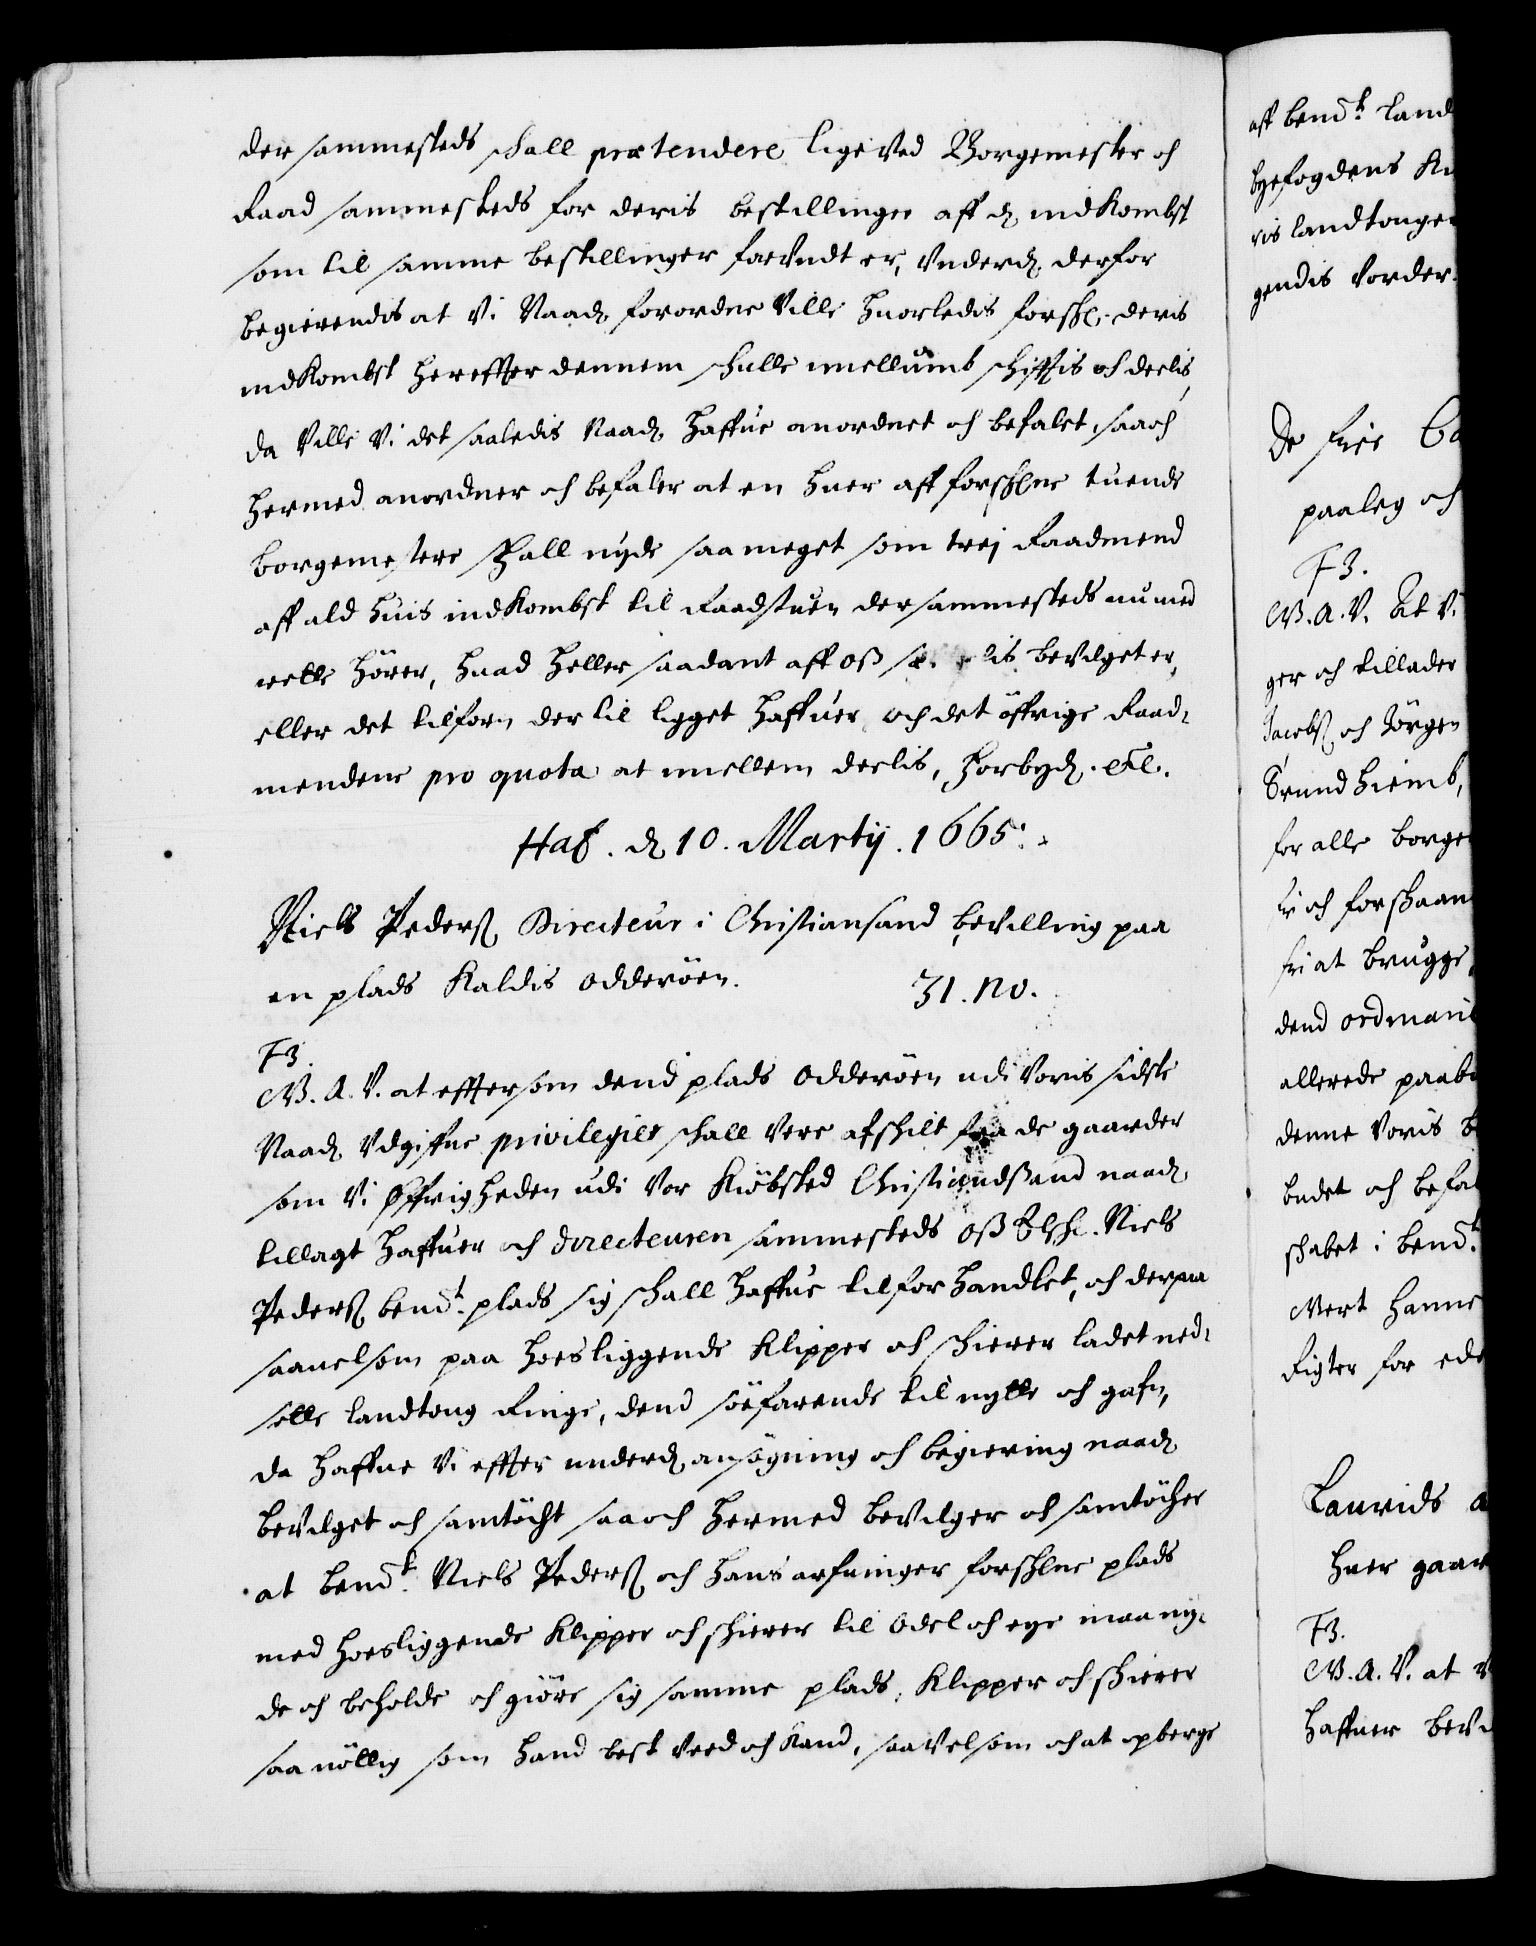 der sammesteds schall prætendere lige ved Borgemester och
Raad sammesteds for deris bestillinger aff dᷓ indkombst
som til samme bestillinger forundt er, underdᷓ derfor
begierendis at Vi Naadᷓ forordne Ville huorledis forsche. deris
indkombst hereffter dennem schulle imellumb schifftis och deelis,
da Ville Vi det saaledis Naadᷓ haffue anordnet och befalet, saa och
hermed anordner och befaler at en huer aff forschne tuende
borgemestere schall nyde saa meget som trej Raadmend
aff ald huis indkombst til Raadstuen dersammesteds nu med
rette hører, huad heller saadant aff oß bevilget er,
eller det tilforn der til ligget haffuer, och det öffrige Raad-
mendene pro quota at imellem deelis, Forbydᷓ. etc.
Haf. dᷓ 10. Martij. 1665.
Niels Pedersᷓ Directeur i Christiansand bevilling paa
en plads kaldis Odderöen. 31. no.
F3.
W. A. V. at effter som dend plads Odderöen udi Voris sidste
Naadᷓ Udgiffne privilegier schall Vere afschilt fra de gaarder
som Vi Øffrigheden udi Vor Kiöbsted Christiandßand naadᷓ
tillagt haffuer och directeuren sammesteds oß Elsche. Niels
Pedersᷓ bendt. plads sig schall haffue tilforhandlet, och derpaa
saauelsom paa hoesliggende Klipper och schierer ladet ned-
sette landtong Ringe, dend söefarende til nytte och gafn,
da haffue Vi effter underdᷓ ansögning och begiering naadᷓ
bevilget och samtöcht saa och hermed bevilger och samtöcher
at bendt. Niels Pedersᷓ och hans arfuinger forschne plads
med hoesliggende Klipper och schierer til Odel och eye maa ny-
de och beholde och giöre sig samme plads, Klipper och schierer
saa nöttig som hand best veed och kand, saavelsom och at opberge
aff bendt. land
byefogdens
ris landtonge
gendis vorder.
De frie
paaleg och
F3.
W. A. V. At Vi
ger och tillader
Jacobsᷓ och Jörgen
Trundhiemb,
for alle borge
och forschaan
fri at brugge,
dend ordinarie
allerede paab
denne Voris b
budet och befa
schabet i bendt.
Wert hanne
Rigter for ede
Laurids
huer gaar
F3.
W. A. V. at
haffuer bevi